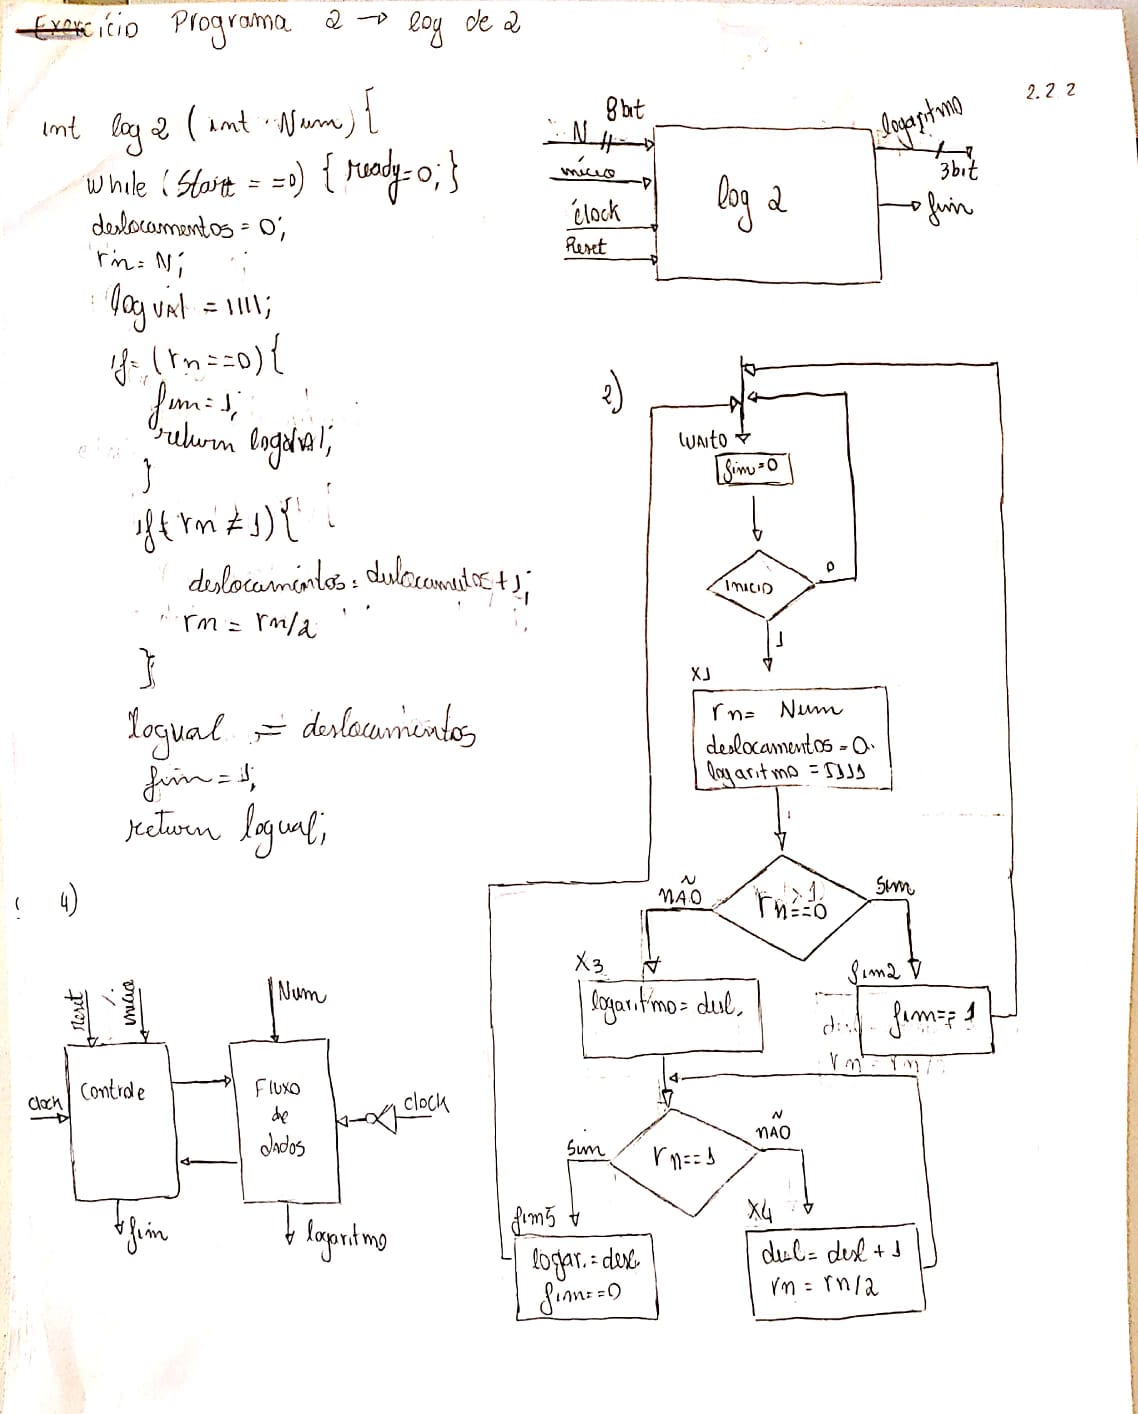 Exercício Programa 2 → log de 2
2.2 2
int log 2 (int Num) {
while (Start = =0) { ready=0; }
deslocamentos = 0;
rn= N;
log val = 1111;
if (rn==0) {
fim=1;
return logval;
}
if( rn ≠ 1) {
deslocamentos = deslocamentos + 1;
rn = rn/2
}
logval = deslocamentos
fim = 1;
return logval;
8bit
N
início
clock
Reset
log 2
logaritmo
3bit
fim
2)
WAIT0
fim=0
INICIO
0
1
X1
rn= Num
deslocamentos = 0.
logaritmo = 1111
rn==0
NÃO
Sim
X3
logaritmo = desl.
fim2
fim== 1
rn==1
Sim
NÃO
fim5
logar. = desl.
fim==0
X4
desl = desl + 1
rn = rn/2
4)
Reset
início
Num
clock
Controle
Fluxo
de
dados
clock
fim
logaritmo